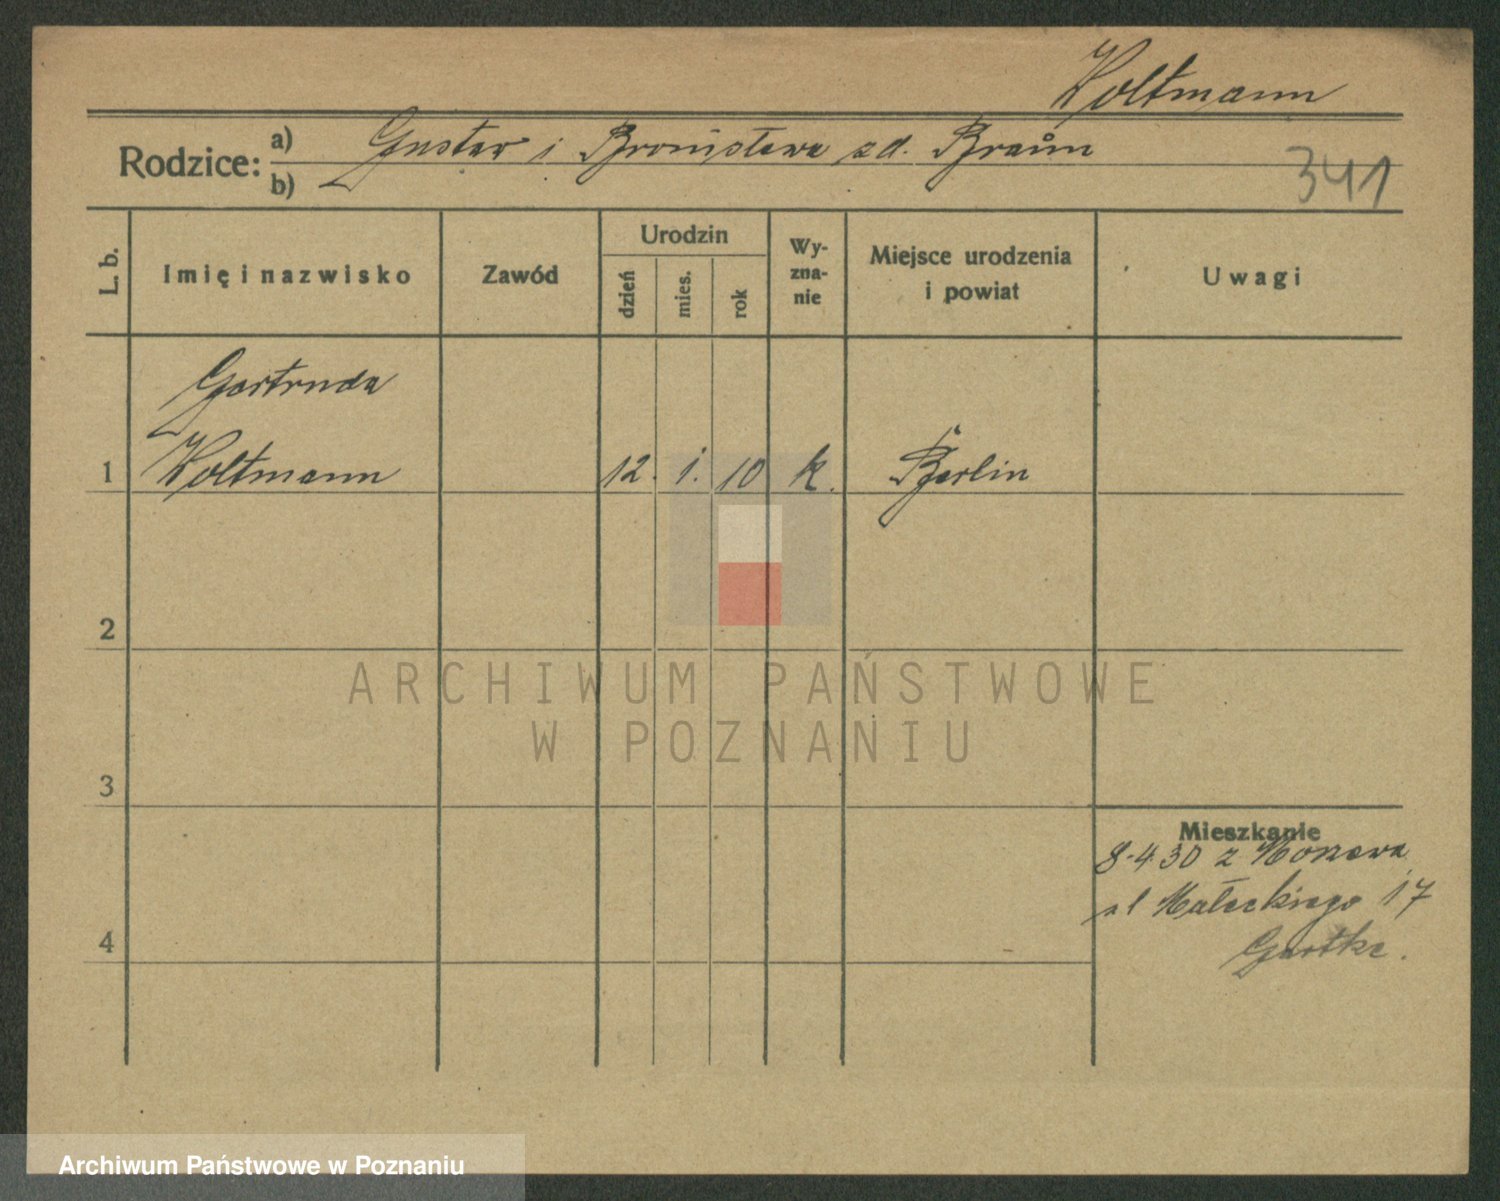 Woltmann
Rodzice: a) Gustaw i Bronisława zd. Braun
b)
341
L. b.
Imię i nazwisko
Zawód
Urodzin
dzień
mies.
rok
Wy-
zna-
nie
Miejsce urodzenia
i powiat
Uwagi
Gertruda
1 Woltmann 12. 1. 10 k. Berlin
2
3
4
Mieszkanie
8.4.30 z
ul Małeckiego 17
ARCHIWUM PAŃSTWOWE
W POZNANIU
Archiwum Państwowe w Poznaniu